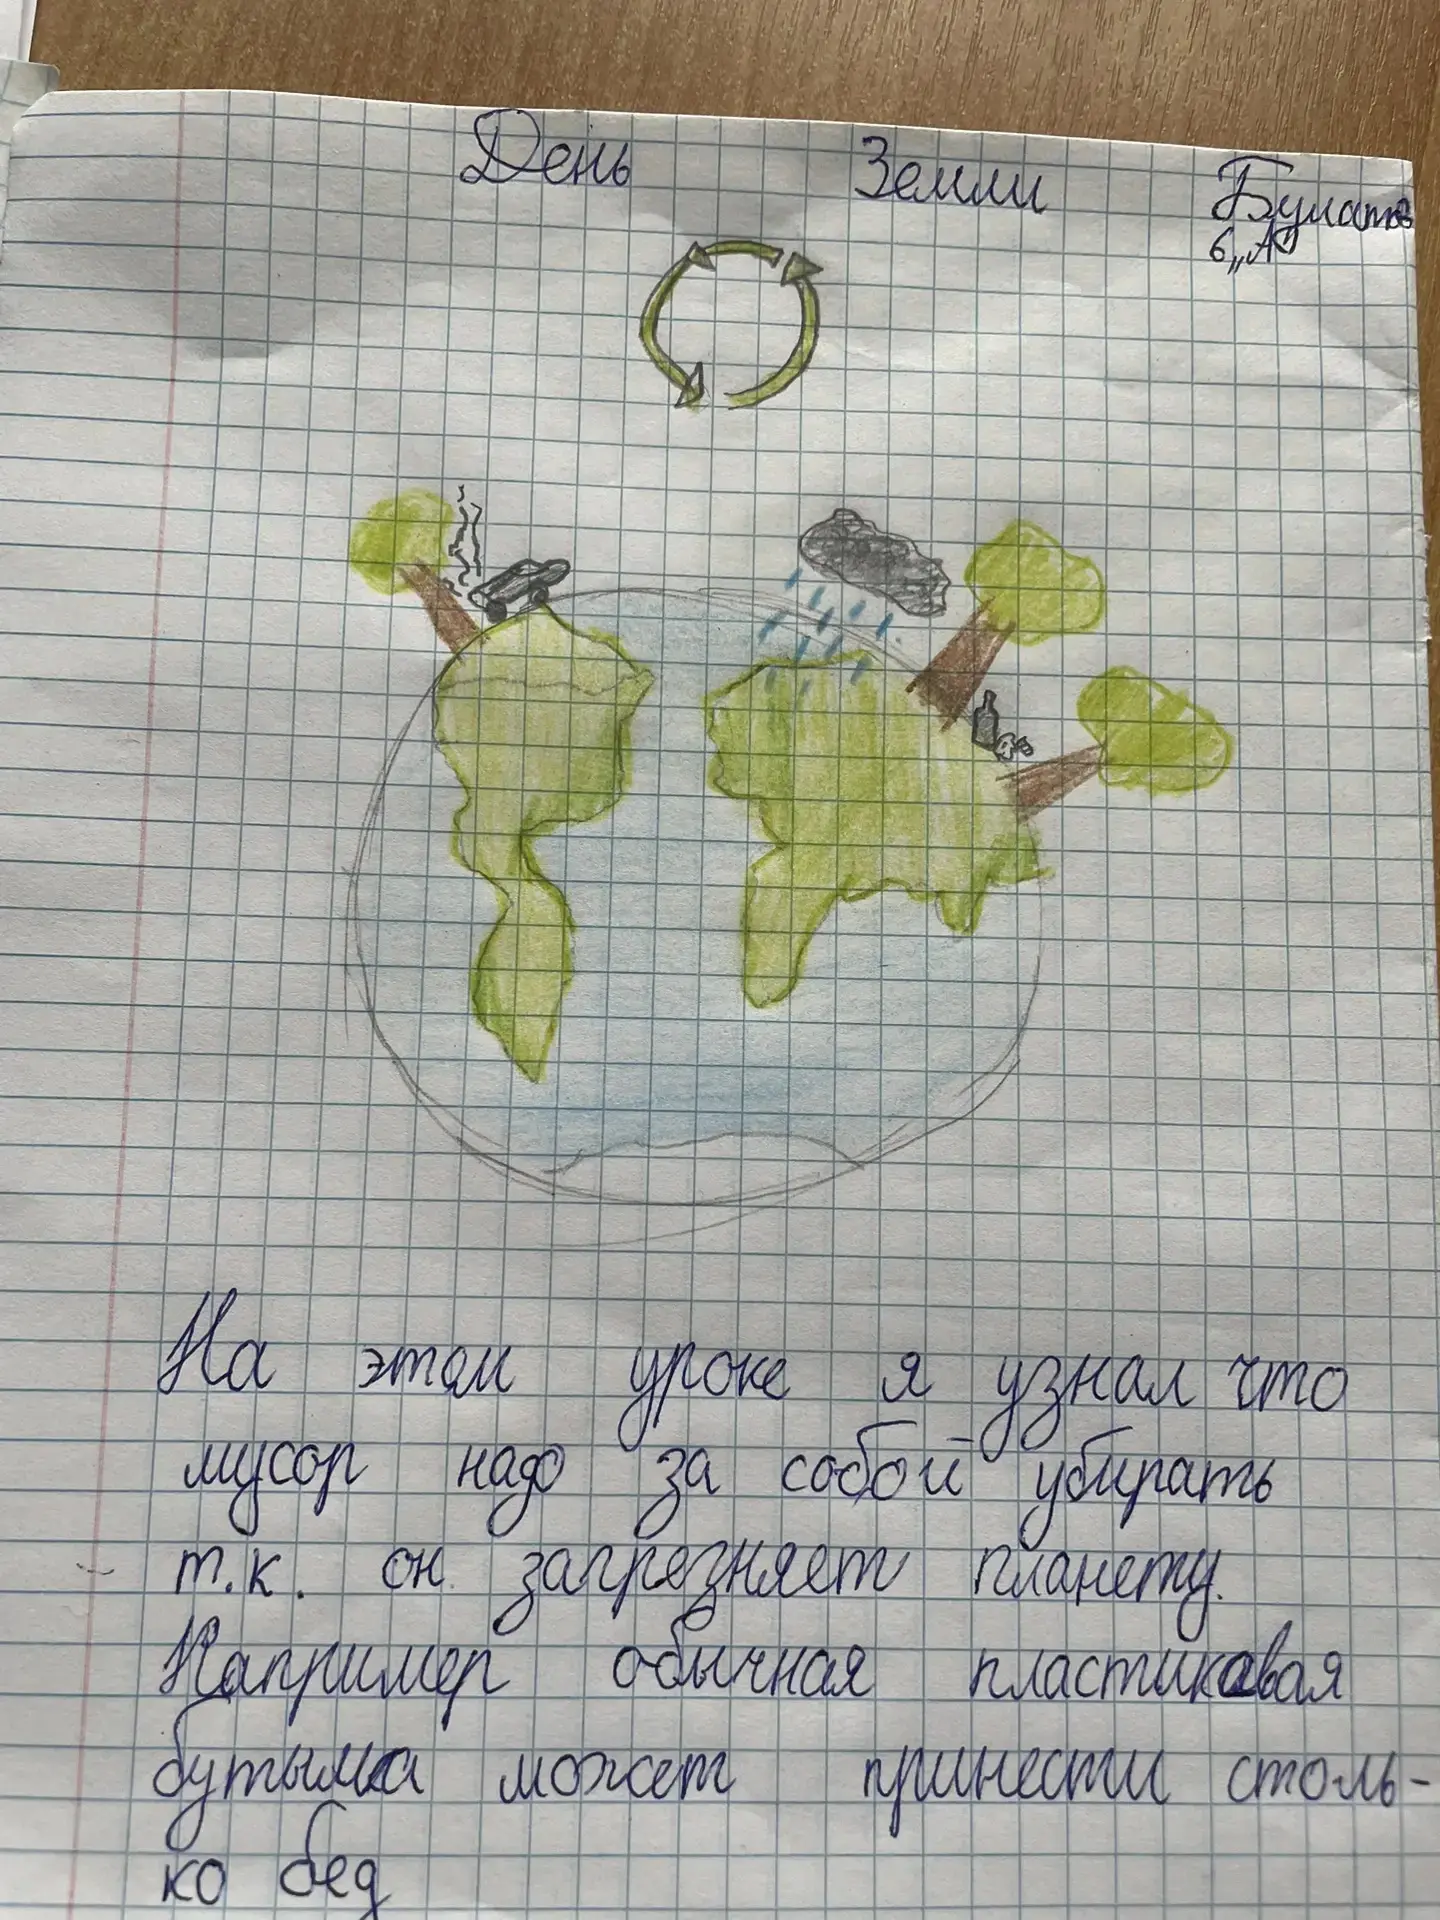 День Земли
Булатов
6 „А"
На этом уроке я узнал что
мусор надо за собой убирать
т.к. он загрезняет планету.
Например обычная пластиковая
бутылка может принести столь-
ко бед